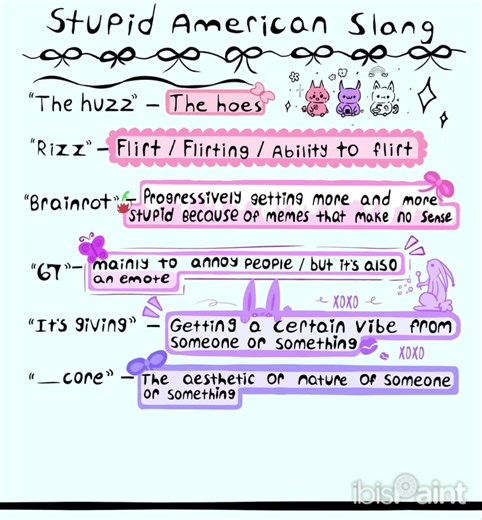 Stupid American Slang
"The huzz" – The hoes
"Rizz" – Flirt / Flirting / Ability to flirt
"Brainrot" – Progressively getting more and more
stupid because of memes that make no sense
"67" – mainly to annoy people / but it's also
an emote
XOXO
"It's giving" – Getting a certain vibe from
someone or something
XOXO
"__core" – The aesthetic or nature of someone
or something
ibisPaint